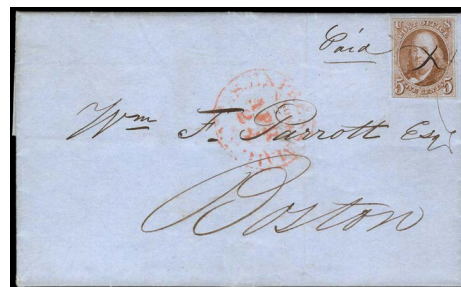 Paid
POST OFFICE
5 5
FIVE CENTS
Wm F. Parrott Esq
Boston